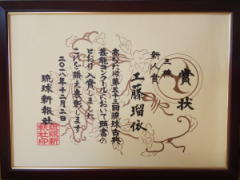 賞状
三線
新人賞
工藤瑠依
あなたは第五十三回琉球古典
芸能コンクールにおいて頭書の
とおり入賞しました
これを賞え表彰します
二〇一八年十二月二日
琉球新報社